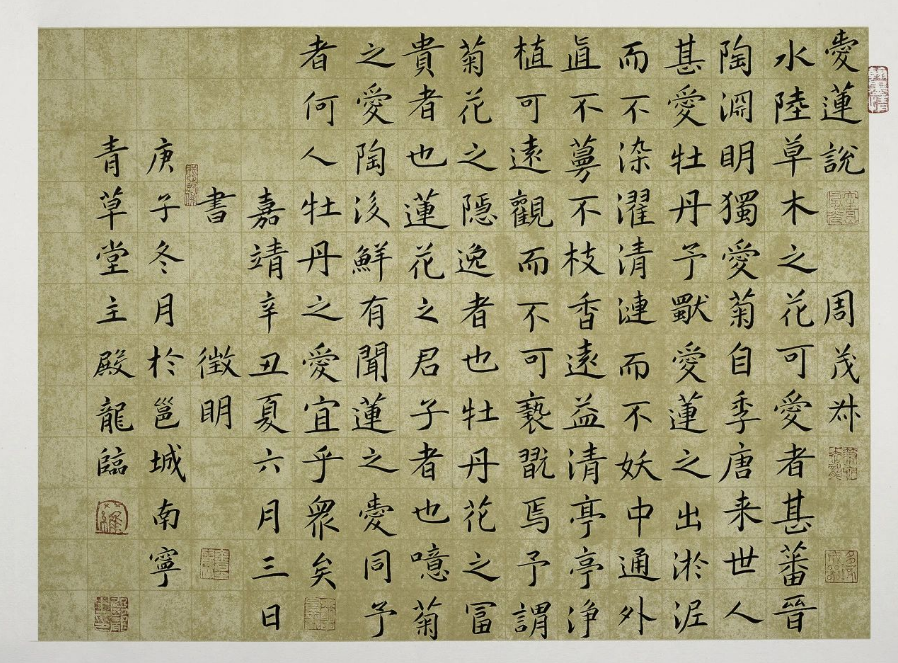 愛蓮說 周茂叔
水陸草木之花可愛者甚蕃晉
陶淵明獨愛菊自李唐来世人
甚愛牡丹予獸愛蓮之出淤泥
而不染濯清漣而不妖中通外
直不蔓不枝香遠益清亭亭淨
植可遠觀而不可褻翫焉予謂
菊花之隱逸者也牡丹花之冨
貴者也蓮花之君子者也噫菊
之愛陶后鮮有聞蓮之愛同予
者何人牡丹之愛宜乎眾矣
嘉靖辛丑夏六月三日
書 徵明
庚子冬月於邕城南寧
青草堂主殿龍臨